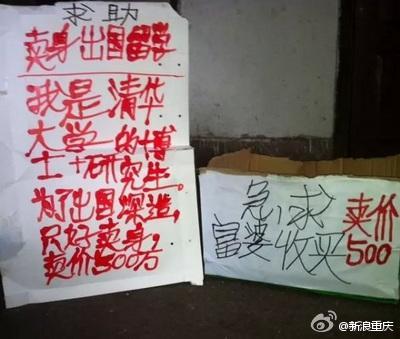 求助
卖身出国留学
我是清华
大学的博
士+研究生。
为了出国深造,
只好卖身,
卖价500万
急,求
富婆收买
卖价
500
@新浪重庆